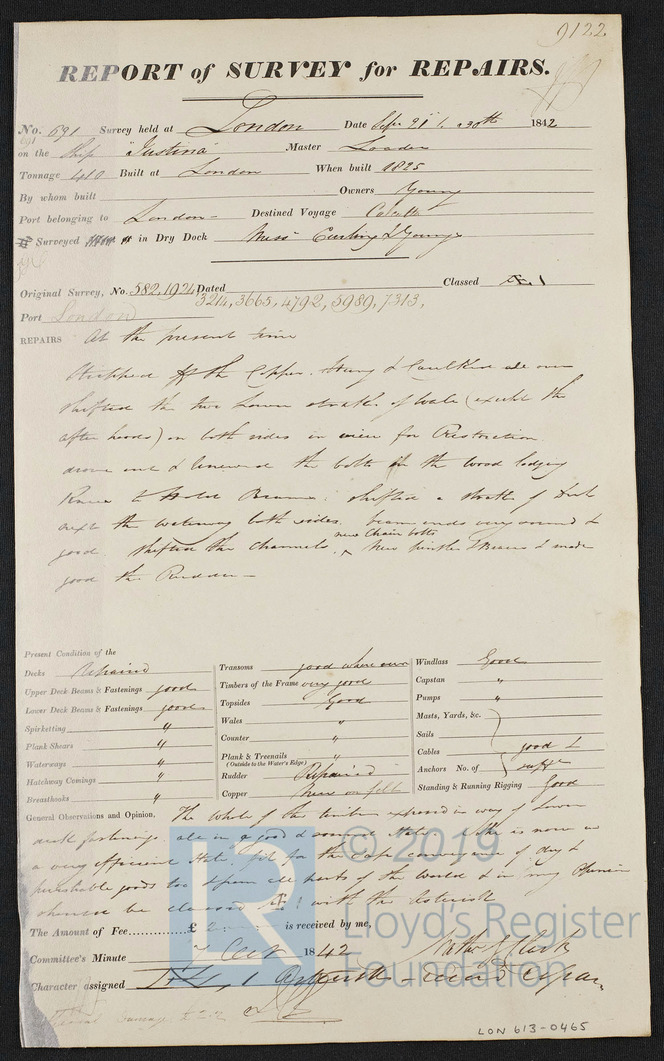 9122
REPORT of SURVEY for REPAIRS.
No. 691 Survey held at London Date Sepr 21st & 30th 1842
691
on the Ship "Justina" Master Loader
Tonnage 410 Built at London When built 1825
By whom built Owners Young
Port belonging to London Destined Voyage
Surveyed in Dry Dock Messrs Curling & Young
Original Survey, No. 582, 1924, Dated Classed Æ 1
3214, 3665, 4792, 5989, 7313,
Port London
REPAIRS At the present time
Stripped off the Copper. & Caulked all over
shifted the two lower strakes of wale (except the
after hoods) on both sides in view for Restoration
drove out & renewed the bolts in the wood lodging
Knees to Hold Beams. shifted a strake of Deck
next the waterway both sides. beam ends very sound &
good. shifted the channels new Chain bolts New pintles & Braces & made
good the Rudder
Present Condition of the
Decks Repaired
Upper Deck Beams & Fastenings good
Lower Deck Beams & Fastenings good
Spirketting "
Plank Shears "
Waterways "
Hatchway Comings "
Breasthooks "
Transoms good where seen
Timbers of the Frame very good
Topsides Good
Wales "
Counter "
Plank & Treenails "
(Outside to the Water's Edge)
Rudder Repaired
Copper New on felt
Windlass Good
Capstan "
Pumps "
Masts, Yards, &c.
Sails
Cables good &
Anchors No. of sufft
Standing & Running Rigging Good
General Observations and Opinion, The whole of the timbers exposed in way of lower
deck fastenings are in a good & sound state. & she is now in
a very efficient state, fit for the safe conveyance of dry &
perishable goods to & from all parts of the World & in my Opinion
should be classed Æ 1 with the Asterisk
The Amount of Fee £ 2 is received by me,
Committee's Minute 7 Octr 1842
Character assigned Æ 1
© 2019
LR
Lloyd's Register
Foundation
LON 613-0465